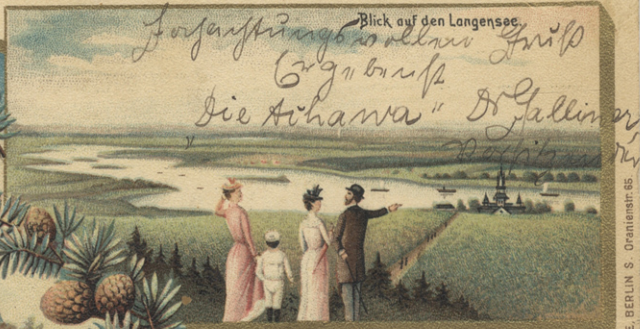 Blick auf den Langensee.
Hochachtungsvollen Gruß
Ergebenst
„Die Achawa" Dr Galliner
Vorsitzender
BERLIN S Oranienstr. 65.